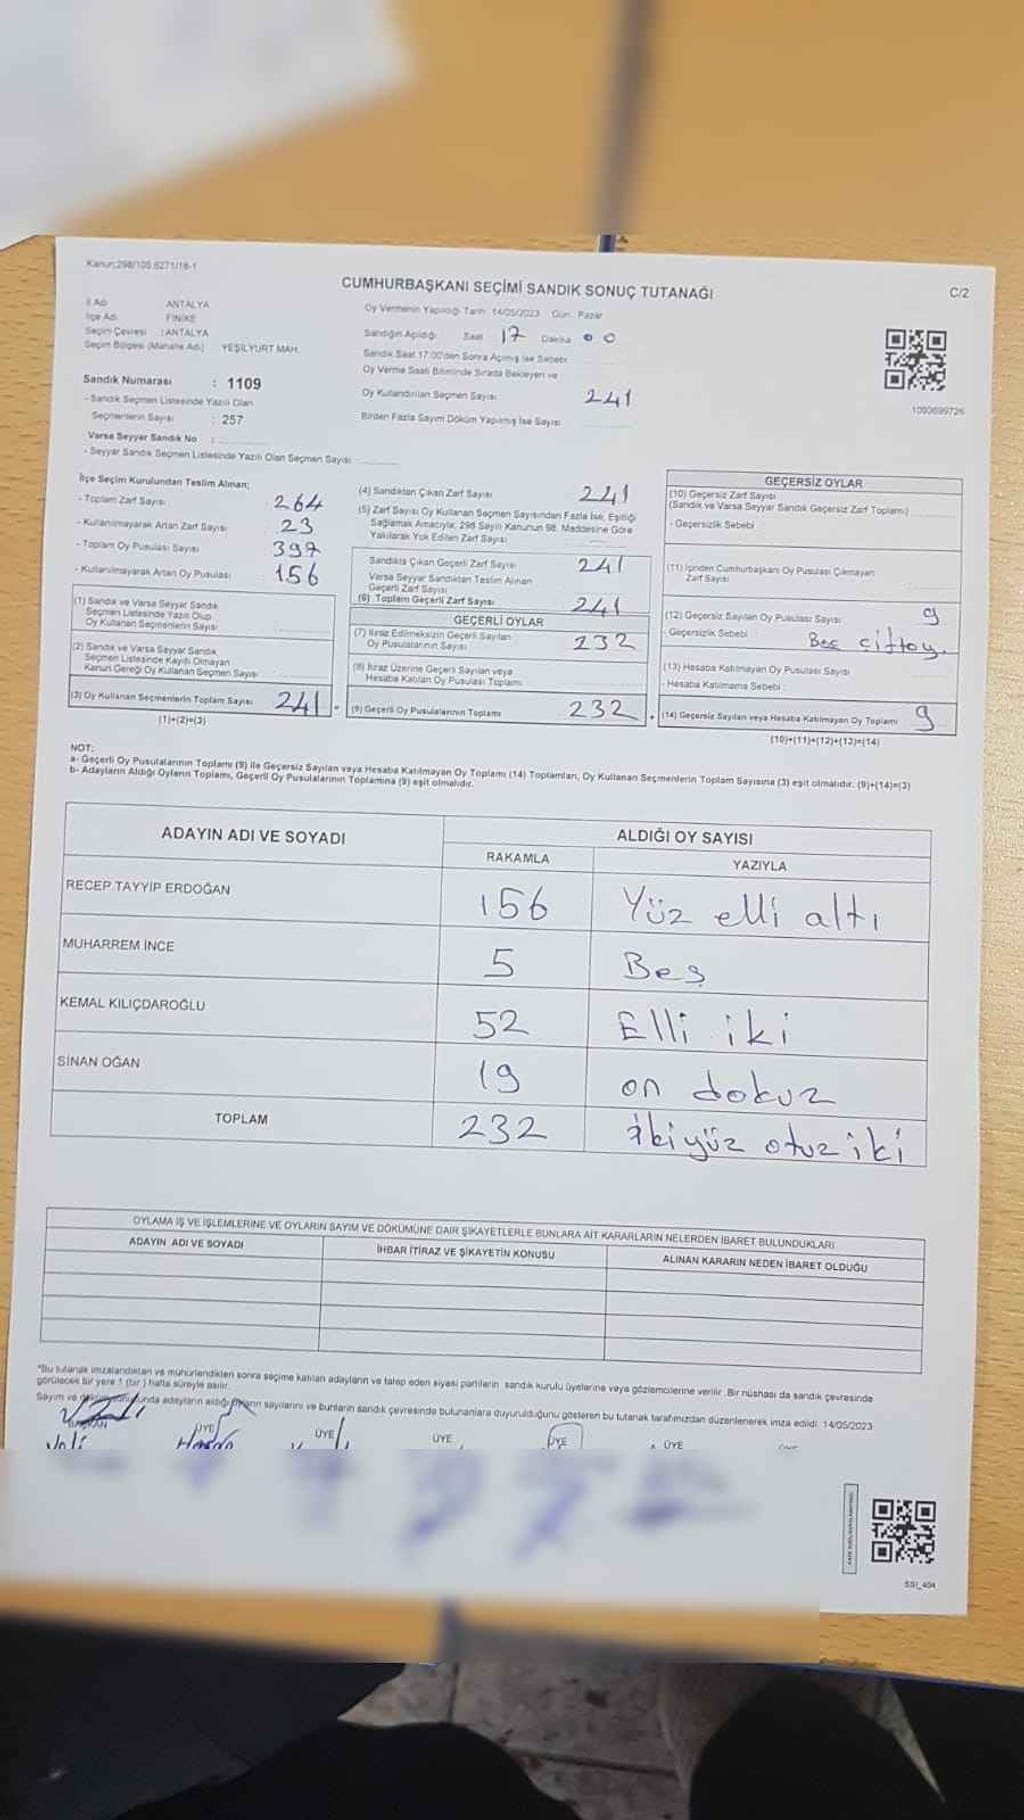 Kanun;298/105.6271/18-1
CUMHURBAŞKANI SEÇİMİ SANDIK SONUÇ TUTANAĞI
C/2
İl Adı ANTALYA
İlçe Adı FİNİKE
Seçim Çevresi : ANTALYA
Seçim Bölgesi (Mahalle Adı) YEŞİLYURT MAH.
Sandık Numarası : 1109
- Sandık Seçmen Listesinde Yazılı Olan
Seçmenlerin Sayısı : 257
Varsa Seyyar Sandık No :
- Seyyar Sandık Seçmen Listesinde Yazılı Olan Seçmen Sayısı
Oy Vermenin Yapıldığı Tarih 14/05/2023 Gün : Pazar
Sandığın Açıldığı Saat 17 Dakika 00
Sandık Saat 17:00'den Sonra Açılmış İse Sebebi
Oy Verme Saati Bitiminde Sırada Bekleyen ve
Oy Kullandırılan Seçmen Sayısı 241
Birden Fazla Sayım Döküm Yapılmış İse Sayısı
1090699726
İlçe Seçim Kurulundan Teslim Alınan;
- Toplam Zarf Sayısı 264
- Kullanılmayarak Artan Zarf Sayısı 23
- Toplam Oy Pusulası Sayısı 397
- Kullanılmayarak Artan Oy Pusulası 156
(1) Sandık ve Varsa Seyyar Sandık
Seçmen Listesinde Yazılı Olup
Oy Kullanan Seçmenlerin Sayısı
(2) Sandık ve Varsa Seyyar Sandık
Seçmen Listesinde Kayıtlı Olmayan
Kanun Gereği Oy Kullanan Seçmen Sayısı
(3) Oy Kullanan Seçmenlerin Toplam Sayısı 241
(1)+(2)=(3)
(4) Sandıktan Çıkan Zarf Sayısı 241
(5) Zarf Sayısı Oy Kullanan Seçmen Sayısından Fazla İse, Eşitliği
Sağlamak Amacıyla; 298 Sayılı Kanunun 98. Maddesine Göre
Yakılarak Yok Edilen Zarf Sayısı
Sandıkta Çıkan Geçerli Zarf Sayısı 241
Varsa Seyyar Sandıktan Teslim Alınan
Geçerli Zarf Sayısı
(6) Toplam Geçerli Zarf Sayısı 241
GEÇERLİ OYLAR
(7) İtiraz Edilmeksizin Geçerli Sayılan
Oy Pusulalarının Sayısı 232
(8) İtiraz Üzerine Geçerli Sayılan veya
Hesaba Katılan Oy Pusulası Toplamı
(9) Geçerli Oy Pusulalarının Toplamı 232
GEÇERSİZ OYLAR
(10) Geçersiz Zarf Sayısı
(Sandık ve Varsa Seyyar Sandık Geçersiz Zarf Toplamı)
- Geçersizlik Sebebi
(11) İçinden Cumhurbaşkanı Oy Pusulası Çıkmayan
Zarf Sayısı
(12) Geçersiz Sayılan Oy Pusulası Sayısı 9
- Geçersizlik Sebebi Beş çiftoy.
(13) Hesaba Katılmayan Oy Pusulası Sayısı
- Hesaba Katılmama Sebebi
(14) Geçersiz Sayılan veya Hesaba Katılmayan Oy Toplamı 9
(10)+(11)+(12)+(13)=(14)
NOT:
a- Geçerli Oy Pusulalarının Toplamı (9) ile Geçersiz Sayılan veya Hesaba Katılmayan Oy Toplamı (14) Toplamları, Oy Kullanan Seçmenlerin Toplam Sayısına (3) eşit olmalıdır. (9)+(14)=(3)
b- Adayların Aldığı Oyların Toplamı, Geçerli Oy Pusulalarının Toplamına (9) eşit olmalıdır.
ADAYIN ADI VE SOYADI ALDIĞI OY SAYISI
RAKAMLA YAZIYLA
RECEP TAYYİP ERDOĞAN 156 Yüz elli altı
MUHARREM İNCE 5 Beş
KEMAL KILIÇDAROĞLU 52 Elli iki
SİNAN OĞAN 19 on dokuz
TOPLAM 232 ikiyüz otuz iki
OYLAMA İŞ VE İŞLEMLERİNE VE OYLARIN SAYIM VE DÖKÜMÜNE DAİR ŞİKAYETLERLE BUNLARA AİT KARARLARIN NELERDEN İBARET BULUNDUKLARI
ADAYIN ADI VE SOYADI İHBAR İTİRAZ VE ŞİKAYETİN KONUSU ALINAN KARARIN NEDEN İBARET OLDUĞU
"Bu tutanak imzalandıktan ve mühürlendikten sonra seçime katılan adayların ve talep eden siyasi partilerin sandık kurulu üyelerine veya gözlemcilerine verilir. Bir nüshası da sandık çevresinde
görülecek bir yere 1 (bir) hafta süreyle asılır.
Sayım ve dökümü sonunda adayların aldığı oyların sayılarını ve bunların sandık çevresinde bulunanlara duyurulduğunu gösteren bu tutanak tarafımızdan düzenlenerek imza edildi. 14/05/2023
BAŞKAN ÜYE ÜYE ÜYE ÜYE ÜYE
SSI_404